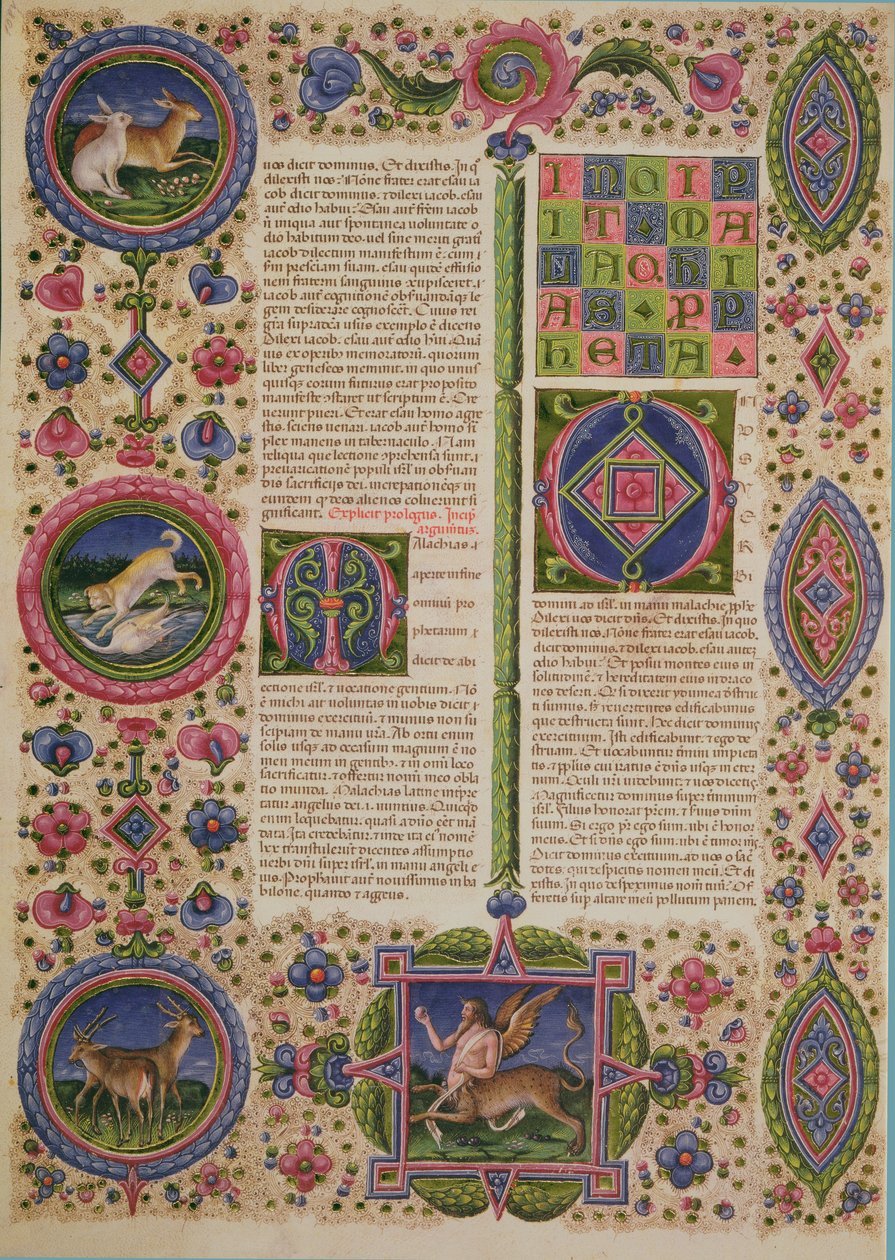 uos dicit dominus. Et dixistis. In q̊
dilexisti nos: Nõne frater erat esau ia
cob dicit dominus. ⁊ dilexi iacob. esau
aut̃ odio habui: Esau aut̃ frẽm iacob
ñ iniqua aut spontanea uoluntate o
dio habitum deo. uel sine meriti grati᷒
iacob dilectum manifestum ẽ. cum i
presciam suam. esau quidẽ effusio
nem fraterni sanguinis
iacob aut̃ cognitionẽ obẜuandaꝗ le
gem desiderare cognoscẽt. Cuius rei
gr̃a sup̃radc̃a usus exemplo ẽ dicens
Dilexi iacob. esau aut̃ odio hui. Quã
uis ex operib; memoratoꝝ. quorum
liber geneseos meminit. in quo unus
quisqꝫ eorum futurus erat proposito
manifeste ɔstaret ut scriptum ẽ. Cre
uerunt pueri. Et erat esau homo agre
stis. sciens uenari. iacob aut̃ homo sĩ
plex manens in tabernaculo. Nam
reliqua que lectione ɔprehensa sunt. i
preuaricationẽ populi iſrl̃ in obẜuan
dis sacrificijs dei. increpationẽqꝫ in
eundem ꝙ deos alienos coluerunt si
gnificant. Explicit prologus. Incip̃
argum̃tuꝫ.
Malachias ⁊
aperte in fine
omniũ pro
phetarum ⁊
dicit de abi
ectione iſrl̃. ⁊ uocatione gentium. Nõ
ẽ michi ait uoluntas in uobis dicit
dominus exercituũ. ⁊ munus non su
scipiam de manu ur̃a. Ab ortu enim
solis usqꝫ ad occasum magnum ẽ no
men meum in gentib;. ⁊ in om̃i loco
sacrificatur. ⁊ offertur nomĩ meo obla
tio munda. Malachias latine inẗpre
tatur angelus dei. i. nuntius. Quicqd̃
enim loquebatur. quasi a dño eẽnt mã
data. ita credebãtur. ⁊ inde ita ei᷒ nomẽ
lxx transtulerũt dicentes assumptio
uerbi dñi super iſrl̃. in manu angeli e
ius. Prophauit aut̃ nouissimus in ba
bilone. quando ⁊ aggeus.
INCIP
IT•MA
LACHI
AS•PP
HETA•
ONVS VERBI
domini ad iſrl̃. in manu malachie ꝓphẽ
Dilexi uos dicit dñs. Et dixistis. In quo
dilexisti nos: Nõne frater erat esau iacob.
dicit dominus. ⁊ dilexi iacob. esau auteꝫ
odio habui: Et posui montes eius in
solitudinẽ. ⁊ hereditatem eius in draco
nes deserti. Q̊ si dixerit ydumea dẽstruc
ti sumus. sꝫ reuertentes edificabimus
que destructa sunt. Hec dicit dominus
exercituum. Isti edificabunt. ⁊ ego de
struam. Et uocabuntur t̃mini impieta
tis. ⁊ pp̃lus cui iratus ẽ dñs usqꝫ in eter
num. Oculi ur̃i uidebunt. ⁊ uos dicetis.
Magnificetur dominus super t̃minum
iſrl̃. Filius honorat pr̃em. ⁊ ẜuus dñm
suum. Si ergo pr̃ ego sum. ubi ẽ honor
meus. Et si dñs ego sum. ubi ẽ timor m̃s.
Dicit dominus exẽrcituum. ad uos o sac̃
dotes. qui despicitis nomen meũ. Et di
xistis. In quo despeximus nom̃ tuũ: Of
feretis sup̃ altare meũ pollutum panem.